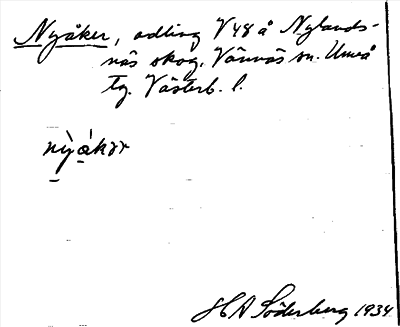 Nyåker, odling V 48 å Nylands-
näs skog. Vännäs sn. Umeå
tg. Västerb. l.
nỳákər
HA Söderberg 1934